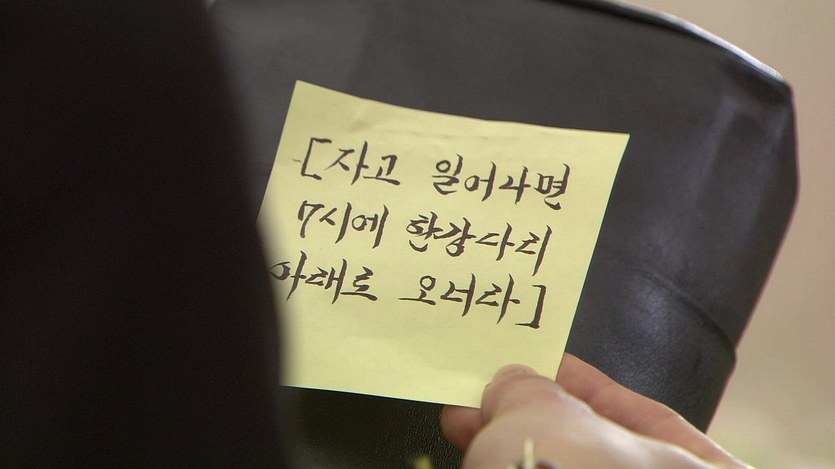 [자고 일어나면
7시에 한강다리
아래로 오너라]